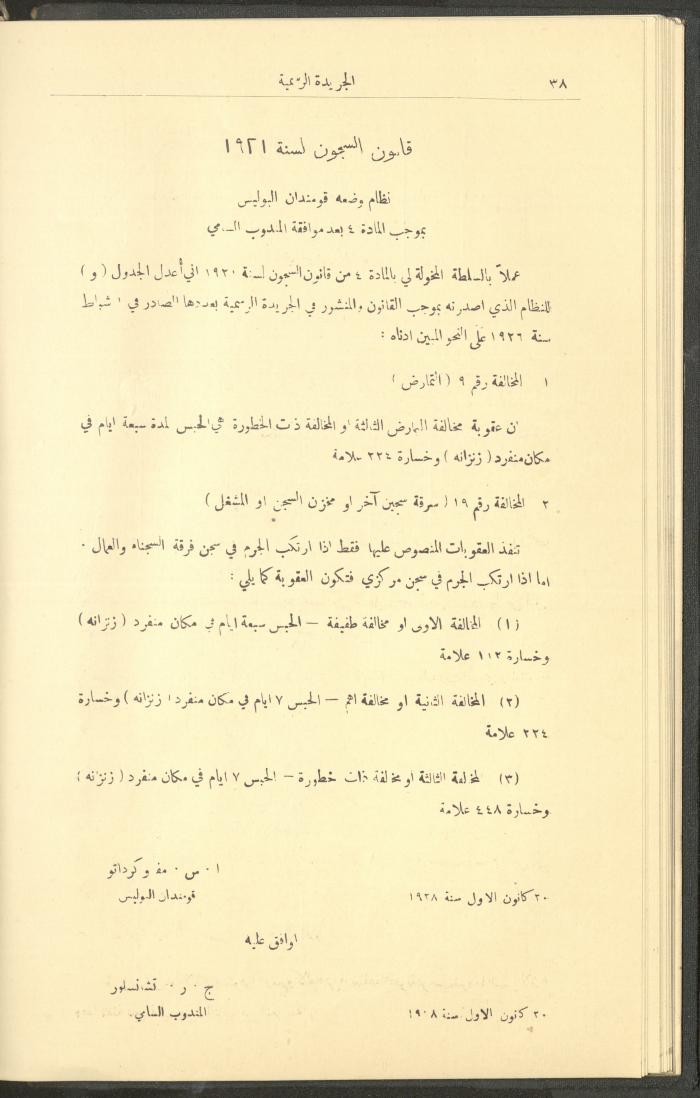 ٣٨
الجريدة الرسمية
قانون السجون لسنة ١٩٢١
نظام وضعه قومندان البوليس
بموجب المادة ٤ بعد موافقة المندوب السامي
عملاً بالسلطة المخولة لي بالمادة ٤ من قانون السجون لسنة ١٩٢١ اني أعدل الجدول ( و )
للنظام الذي اصدرته بموجب القانون والمنشور في الجريدة الرسمية بعددها الصادر في ١ شباط
سنة ١٩٢٦ على النحو المبين ادناه :
١ المخالفة رقم ٩ ( التمارض )
ان عقوبة مخالفة التمارض الثالثة او المخالفة ذات الخطورة هي الحبس لمدة سبعة ايام في
مكان منفرد ( زنزانه ) وخسارة ٢٢٤ علامة
٢ المخالفة رقم ١٩ ( سرقة سجين آخر او مخزن السجن او المشغل )
تنفذ العقوبات المنصوص عليها فقط اذا ارتكب الجرم في سجن فرقة السجناء والعمال ٠
اما اذا ارتكب الجرم في سجن مركزي فتكون العقوبة كما يلي :
(١) المخالفة الاولى او مخالفة طفيفة – الحبس سبعة ايام في مكان منفرد ( زنزانه )
وخسارة ١١٢ علامة
(٢) المخالفة الثانية او مخالفة اهم – الحبس ٧ ايام في مكان منفرد ( زنزانه ) وخسارة
٢٢٤ علامة
(٣) المخالفة الثالثة او مخالفة ذات خطورة – الحبس ٧ ايام في مكان منفرد ( زنزانه )
وخسارة ٤٤٨ علامة
ا ٠ س ٠ مفروكرداتو
٢٠ كانون الاول سنة ١٩٢٨
قومندان البوليس
اوافق عليه
ج ٠ ر ٠ تشانسلور
٢٠ كانون الاول سنة ١٩٠٨
المندوب السامي